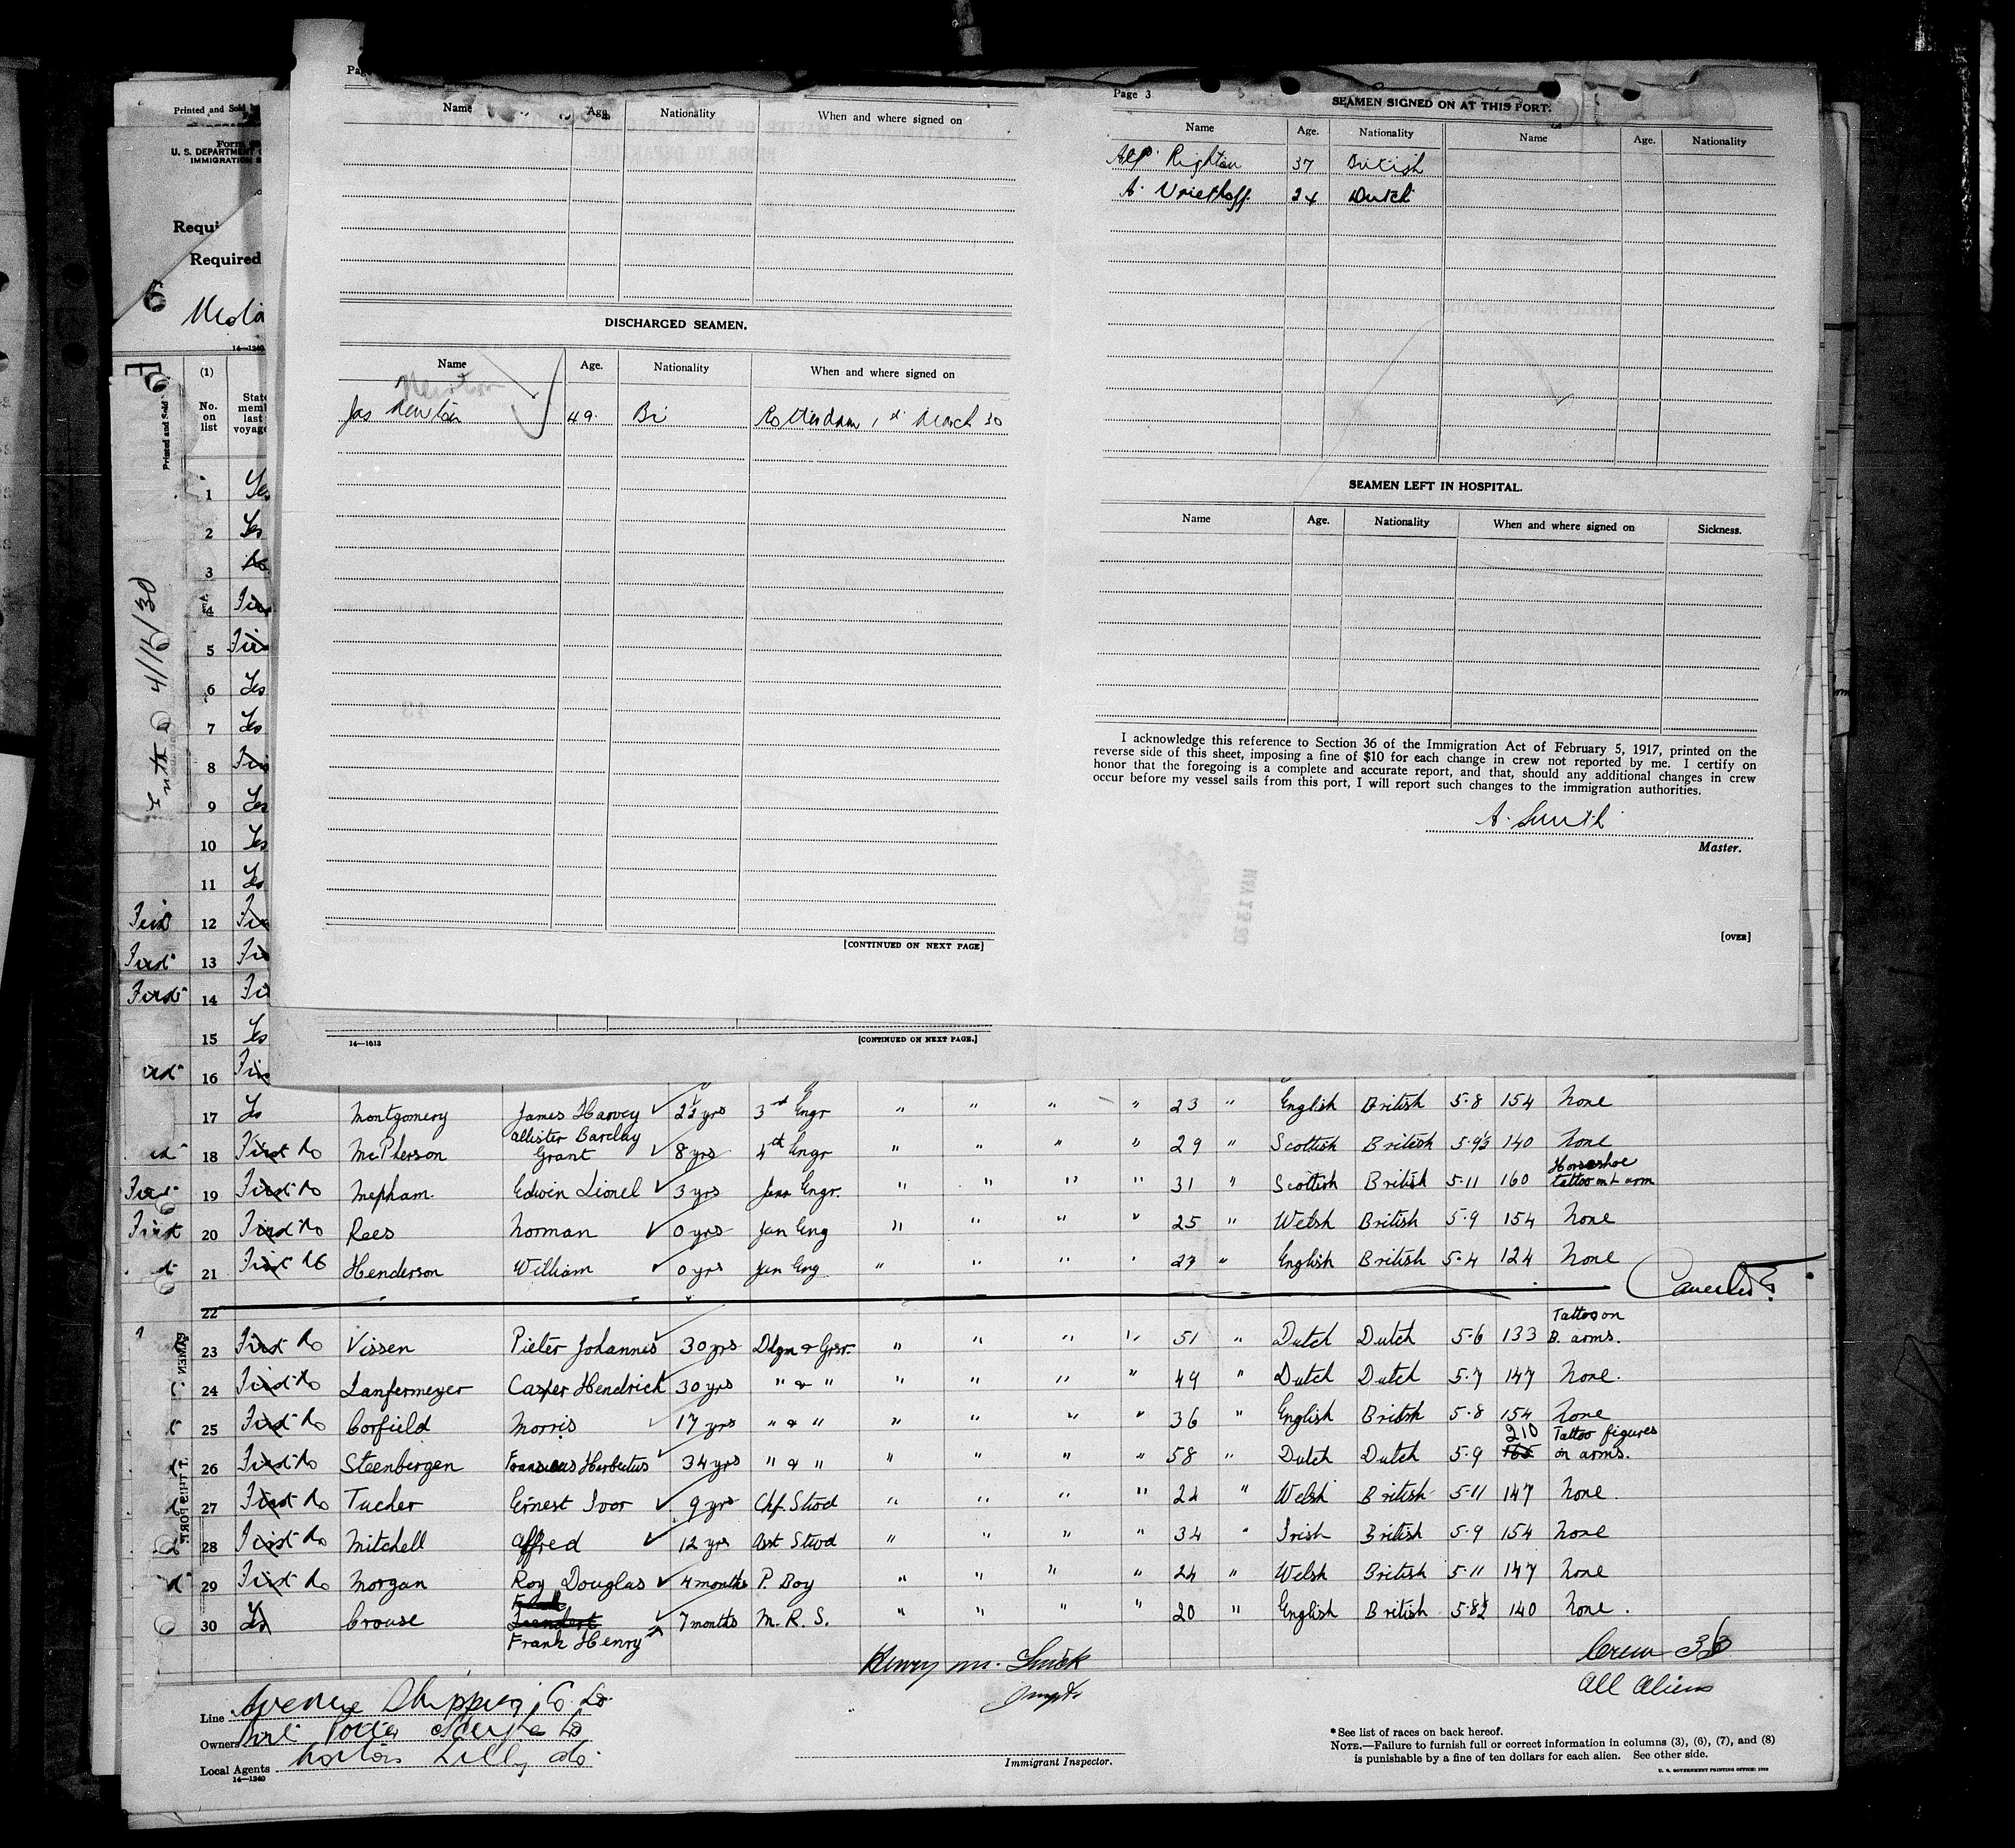 Printed and Sold by
U. S. DEPARTMENT
IMMIGRATION
Required
14—1240
(1)
No. on list
Page
Name Age. Nationality When and where signed on
DISCHARGED SEAMEN.
Name Age. Nationality When and where signed on
Newton
Jas Newton 49. Bri Rotterdam 1st March 30
[CONTINUED ON NEXT PAGE]
14—1613
[CONTINUED ON NEXT PAGE.]
Page 3
SEAMEN SIGNED ON AT THIS PORT.
Name Age. Nationality Name Age. Nationality
Alf Righton 37 British
A. Vriethoff. 24 Dutch
SEAMEN LEFT IN HOSPITAL.
Name Age. Nationality When and where signed on Sickness.
I acknowledge this reference to Section 36 of the Immigration Act of February 5, 1917, printed on the
reverse side of this sheet, imposing a fine of $10 for each change in crew not reported by me. I certify on
honor that the foregoing is a complete and accurate report, and that, should any additional changes in crew
occur before my vessel sails from this port, I will report such changes to the immigration authorities.
A. Smith
Master.
MAY 13 30
[OVER]
4/16/30
1 Yes
2 Yes
3 No
4
5
6 Yes
7 Yes
8
9 Yes
10 Yes
11 Yes
First 12
First 13
First 14
15 Yes
16
17 Yes Montgomery James Harvey 2½ yrs 3rd Engr " " " " 23 " English British 5·8 154 None
18 First No McPherson Allister Barclay Grant 8 yrs 4th Engr " " " " 29 " Scottish British 5·9½ 140 None
First 19 First No Mepham Edwin Lionel 3 yrs Junr Engr. " " " " 31 " Scottish British 5·11 160 Horseshoe tattoo on L arm
First 20 First No Rees Norman 0 yrs Jun Eng " " " " 25 " Welsh British 5·9 154 None
21 First No Henderson William 0 yrs Jun Eng " " " " 27 " English British 5·4 124 None
22 Cancelled
23 First No Vissen Pieter Johannes 30 yrs Dkym & Grsr. " " " " 51 " Dutch Dutch 5·6 133 Tattoo on B. arms.
24 First No Lanfermeyer Casper Hendrick 30 yrs " & " " " " " 49 " Dutch Dutch 5·7 147 None.
25 First No Corfield Morris 17 yrs " & " " " " " 36 " English British 5·8 154 None
26 First No Steenbergen Franscus Herbertus 34 yrs " & " " " " " 58 " Dutch Dutch 5·9 165 210 Tattoo figures on arms.
27 First No Tucker Ernest Ivor 9 yrs Chf. Stwd " " " " 24 " Welsh British 5·11 147 None.
28 First No Mitchell Alfred 12 yrs Asst Stwd " " " " 34 " Irish British 5·9 154 None
29 First No Morgan Roy Douglas 4 months P. Boy " " " " 24 " Welsh British 5·11 147 None
30 Yes Crouse Frank Henry 7 months M. R. S. " " " " 20 " English British 5·8½ 140 None.
Crew 36
All Aliens
Line Avenue Shipping Co. Ld.
Owners
Local Agents Norton Lilly & Co.
14—1240
Immigrant Inspector.
*See list of races on back hereof.
NOTE.—Failure to furnish full or correct information in columns (3), (6), (7), and (8)
is punishable by a fine of ten dollars for each alien. See other side.
U. S. GOVERNMENT PRINTING OFFICE: 1929